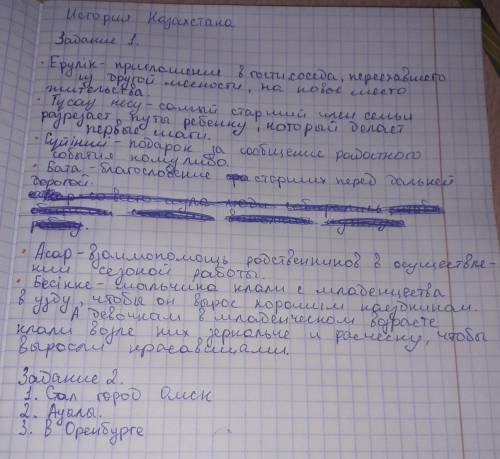 История Казахстана
Задание 1.
• Ерулік - приглашение в гости соседа, переехавшего
из другой месности, на новое место
жительства.
• Тусау кесу - самый старший член семьи
разрезает путы ребенку, который делает
первые шаги.
• Сүйінши - подарок за сообщение радостного
события кому либо.
• Бата - благословение старших перед дальней
дорогой.
• Асар - взаимопомощь родственников в осуществле-
нии сезоной работы.
• Бесікке - мальчика клали с младенчества
в узду, чтобы он вырос хорошим наездником.
А девочкам в младенческом возрасте
клали возле них зеркальце и расческу, чтобы
выросли красавицами.
Задание 2.
1. Стал город Омск
2. Ауылы.
3. В Оренбурге